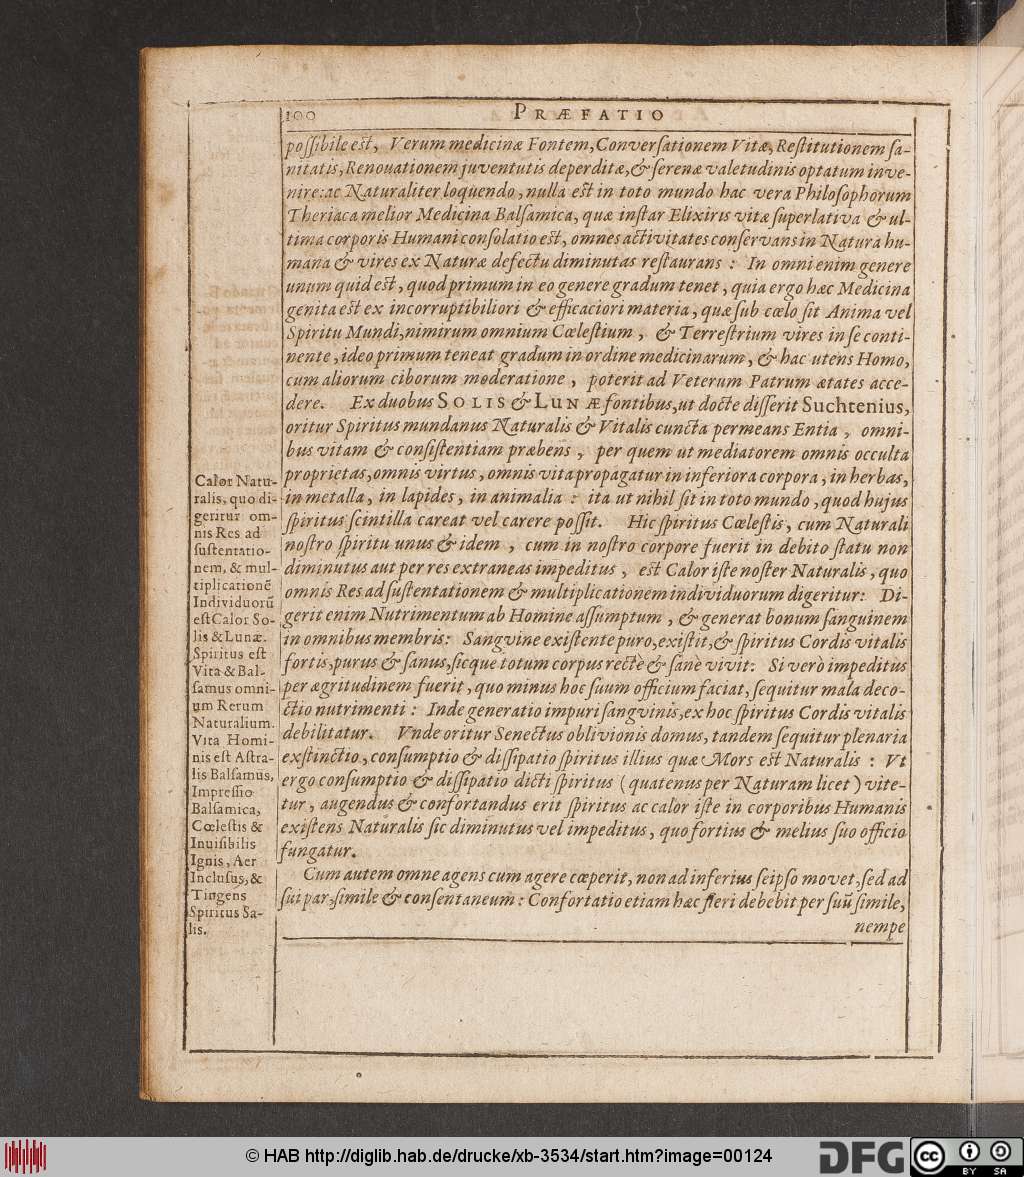 100 PRÆFATIO
poſſibile eſt, Verum medicinæ Fontem, Converſationem Vitæ, Reſtitutionem ſa-
nitatis, Renouationem juventutis deperditæ, & ſerenæ valetudinis optatum inve-
nire: ac Naturaliter loquendo, nulla eſt in toto mundo hac vera Philoſophorum
Theriaca melior Medicina Balſamica, quæ inſtar Elixiris vitæ ſuperlativa & ul-
tima corporis Humani conſolatio eſt, omnes activitates conſervans in Natura hu-
mana & vires ex Naturæ defectu diminutas reſtaurans: In omni enim genere
unum quid eſt, quod primum in eo genere gradum tenet, quia ergo hæc Medicina
genita eſt ex incorruptibiliori & efficaciori materia, quæ ſub cœlo ſit Anima vel
Spiritu Mundi, nimirum omnium Cœleſtium, & Terreſtrium vires in ſe conti-
nente, ideo primum teneat gradum in ordine medicinarum, & hac utens Homo,
cum aliorum ciborum moderatione, poterit ad Veterum Patrum ætates acce-
dere. Ex duobus SOLIS & LUNÆ fontibus, ut docte diſſerit Suchtenius,
oritur Spiritus mundanus Naturalis & Vitalis cuncta permeans Entia, omni-
bus vitam & conſiſtentiam præbens, per quem ut mediatorem omnis occulta
proprietas, omnis virtus, omnis vita propagatur in inferiora corpora, in herbas,
in metalla, in lapides, in animalia: ita ut nihil ſit in toto mundo, quod hujus
ſpiritus ſcintilla careat vel carere poſſit. Hic ſpiritus Cœleſtis, cum Naturali
noſtro ſpiritu unus & idem, cum in noſtro corpore fuerit in debito ſtatu non
diminutus aut per res extraneas impeditus, eſt Calor iſte noſter Naturalis, quo
omnis Res ad ſuſtentationem & multiplicationem individuorum digeritur: Di-
gerit enim Nutrimentum ab Homine aſſumptum, & generat bonum ſanguinem
in omnibus membris: Sangvine exiſtente puro, exiſtit, & ſpiritus Cordis vitalis
fortis, purus & ſanus, ſicque totum corpus rectè & ſanè vivit: Si verò impeditus
per ægritudinem fuerit, quo minus hoc ſuum officium faciat, ſequitur mala deco-
ctio nutrimenti: Inde generatio impuri ſangvinis, ex hoc ſpiritus Cordis vitalis
debilitatur. Vnde oritur Senectus oblivionis domus, tandem ſequitur plenaria
exſtinctio, conſumptio & diſſipatio ſpiritus illius quæ Mors eſt Naturalis: Vt
ergo conſumptio & diſſipatio dicti ſpiritus (quatenus per Naturam licet) vite-
tur, augendus & confortandus erit ſpiritus ac calor iſte in corporibus Humanis
exiſtens Naturalis ſic diminutus vel impeditus, quo fortius & melius ſuo officio
fungatur.
Cum autem omne agens cum agere cœperit, non ad inferius ſeipſo movet, ſed ad
ſui par, ſimile & conſentaneum: Confortatio etiam hæc fieri debebit per ſuũ ſimile,
nempe
Calor Natu-
ralis, quo di-
geritur om-
nis Res ad
ſuſtentatio-
nem, & mul-
tiplicationẽ
Individuorũ
eſt Calor So-
lis & Lunæ.
Spiritus eſt
Vita & Bal-
ſamus omni-
um Rerum
Naturalium.
Vita Homi-
nis eſt Aſtra-
lis Balſamus,
Impreſſio
Balſamica,
Cœleſtis &
Inuiſibilis
Ignis, Aer
Incluſus, &
Tingens
Spiritus Sa-
lis.
© HAB http://diglib.hab.de/drucke/xb-3534/start.htm?image=00124
DFG
cc BY SA